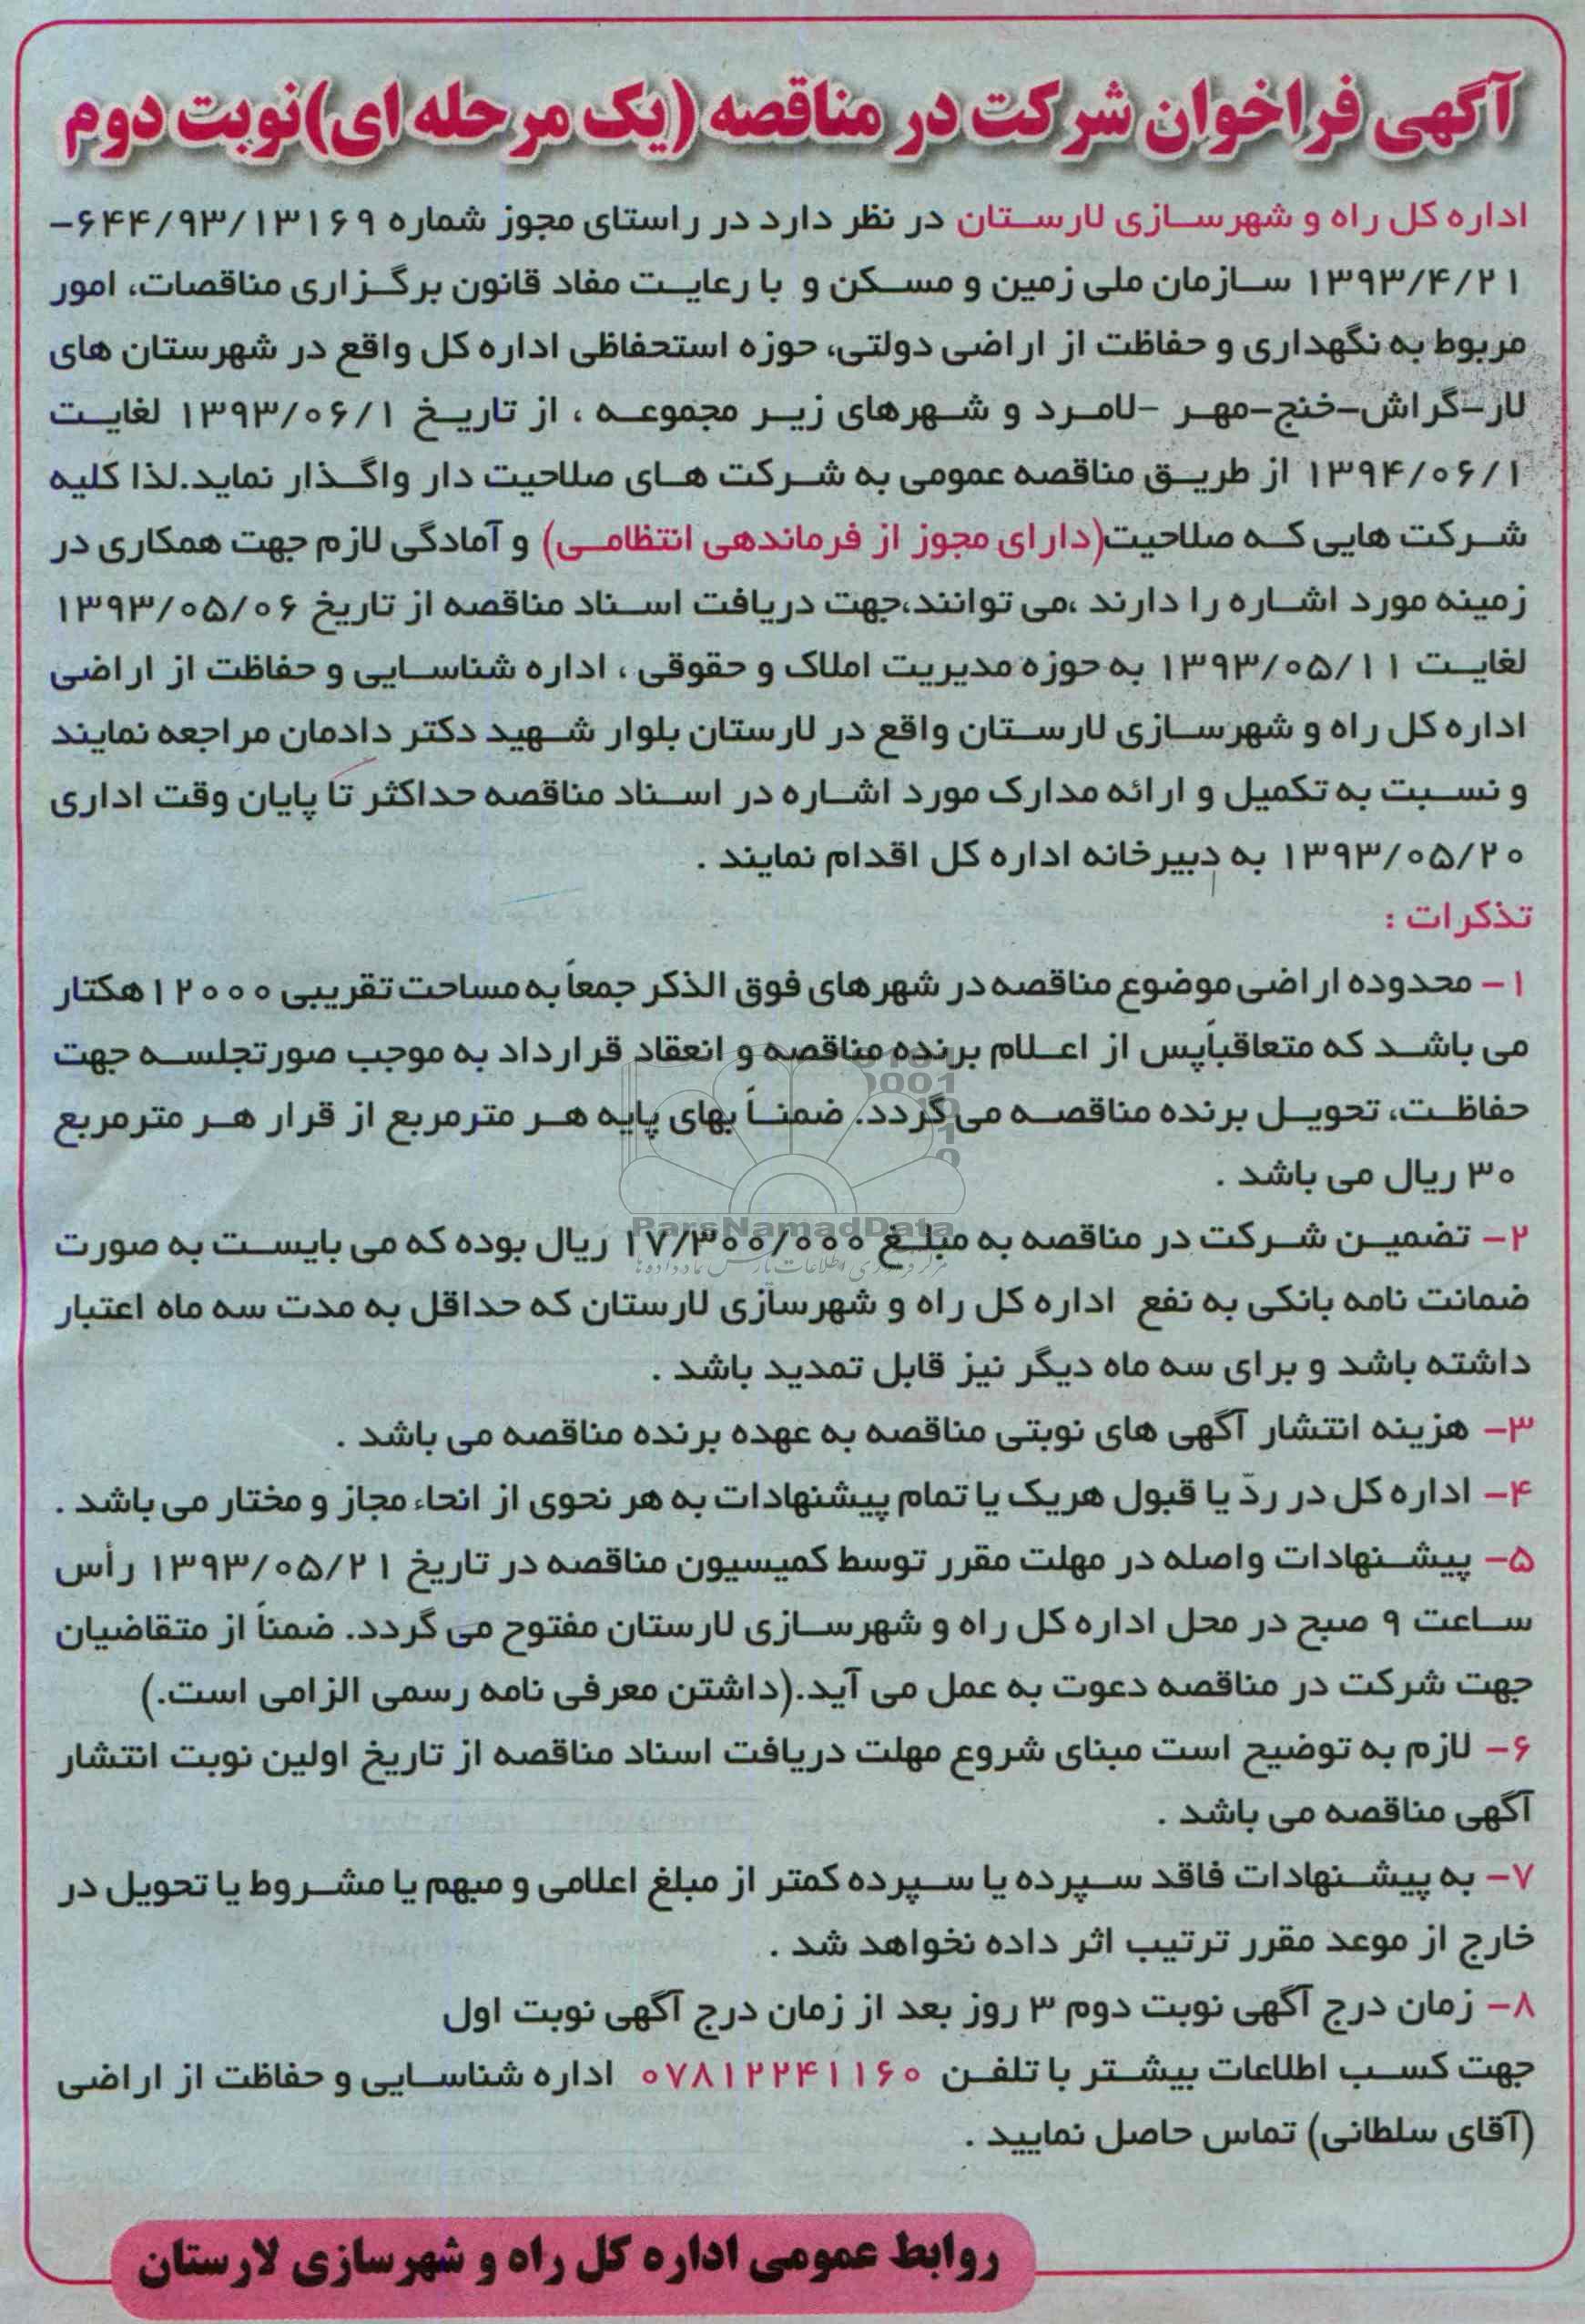 آگهی فراخوان شرکت در مناقصه (یک مرحله ای)نوبت دوم
اداره کل راه و شهرسازی لارستان در نظر دارد در راستای مجوز شماره ۶۴۴/۹۳/۱۳۱۶۹-
۱۳۹۳/۴/۲۱ سازمان ملی زمین و مسکن و با رعایت مفاد قانون برگزاری مناقصات، امور
مربوط به نگهداری و حفاظت از اراضی دولتی، حوزه استحفاظی اداره کل واقع در شهرستان های
لار-گراش-خنج-مهر -لامرد و شهرهای زیر مجموعه ، از تاریخ ۱۳۹۳/۰۶/۱ لغایت
۱۳۹۴/۰۶/۱ از طریق مناقصه عمومی به شرکت های صلاحیت دار واگذار نماید.لذا کلیه
شرکت هایی که صلاحیت(دارای مجوز از فرماندهی انتظامی) و آمادگی لازم جهت همکاری در
زمینه مورد اشاره را دارند ،می توانند،جهت دریافت اسناد مناقصه از تاریخ ۱۳۹۳/۰۵/۰۶
لغایت ۱۳۹۳/۰۵/۱۱ به حوزه مدیریت املاک و حقوقی ، اداره شناسایی و حفاظت از اراضی
اداره کل راه و شهرسازی لارستان واقع در لارستان بلوار شهید دکتر دادمان مراجعه نمایند
و نسبت به تکمیل و ارائه مدارک مورد اشاره در اسناد مناقصه حداکثر تا پایان وقت اداری
۱۳۹۳/۰۵/۲۰ به دبیرخانه اداره کل اقدام نمایند .
تذکرات :
۱- محدوده اراضی موضوع مناقصه در شهرهای فوق الذکر جمعاً به مساحت تقریبی ۱۲۰۰۰هکتار
می باشد که متعاقباًپس از اعلام برنده مناقصه و انعقاد قرارداد به موجب صورتجلسه جهت
حفاظت، تحویل برنده مناقصه می گردد. ضمناً بهای پایه هر مترمربع از قرار هر مترمربع
۳۰ ریال می باشد .
۲- تضمین شرکت در مناقصه به مبلغ ۱۷/۳۰۰/۰۰۰ ریال بوده که می بایست به صورت
ضمانت نامه بانکی به نفع اداره کل راه و شهرسازی لارستان که حداقل به مدت سه ماه اعتبار
داشته باشد و برای سه ماه دیگر نیز قابل تمدید باشد .
۳- هزینه انتشار آگهی های نوبتی مناقصه به عهده برنده مناقصه می باشد .
۴- اداره کل در ردّ یا قبول هریک یا تمام پیشنهادات به هر نحوی از انحاء مجاز و مختار می باشد .
۵- پیشنهادات واصله در مهلت مقرر توسط کمیسیون مناقصه در تاریخ ۱۳۹۳/۰۵/۲۱ رأس
ساعت ۹ صبح در محل اداره کل راه و شهرسازی لارستان مفتوح می گردد. ضمناً از متقاضیان
جهت شرکت در مناقصه دعوت به عمل می آید.(داشتن معرفی نامه رسمی الزامی است.)
۶- لازم به توضیح است مبنای شروع مهلت دریافت اسناد مناقصه از تاریخ اولین نوبت انتشار
آگهی مناقصه می باشد .
۷- به پیشنهادات فاقد سپرده یا سپرده کمتر از مبلغ اعلامی و مبهم یا مشروط یا تحویل در
خارج از موعد مقرر ترتیب اثر داده نخواهد شد .
۸- زمان درج آگهی نوبت دوم ۳ روز بعد از زمان درج آگهی نوبت اول
جهت کسب اطلاعات بیشتر با تلفن ۰۷۸۱۲۲۴۱۱۶۰ اداره شناسایی و حفاظت از اراضی
(آقای سلطانی) تماس حاصل نمایید .
روابط عمومی اداره کل راه و شهرسازی لارستان
ParsNamadData